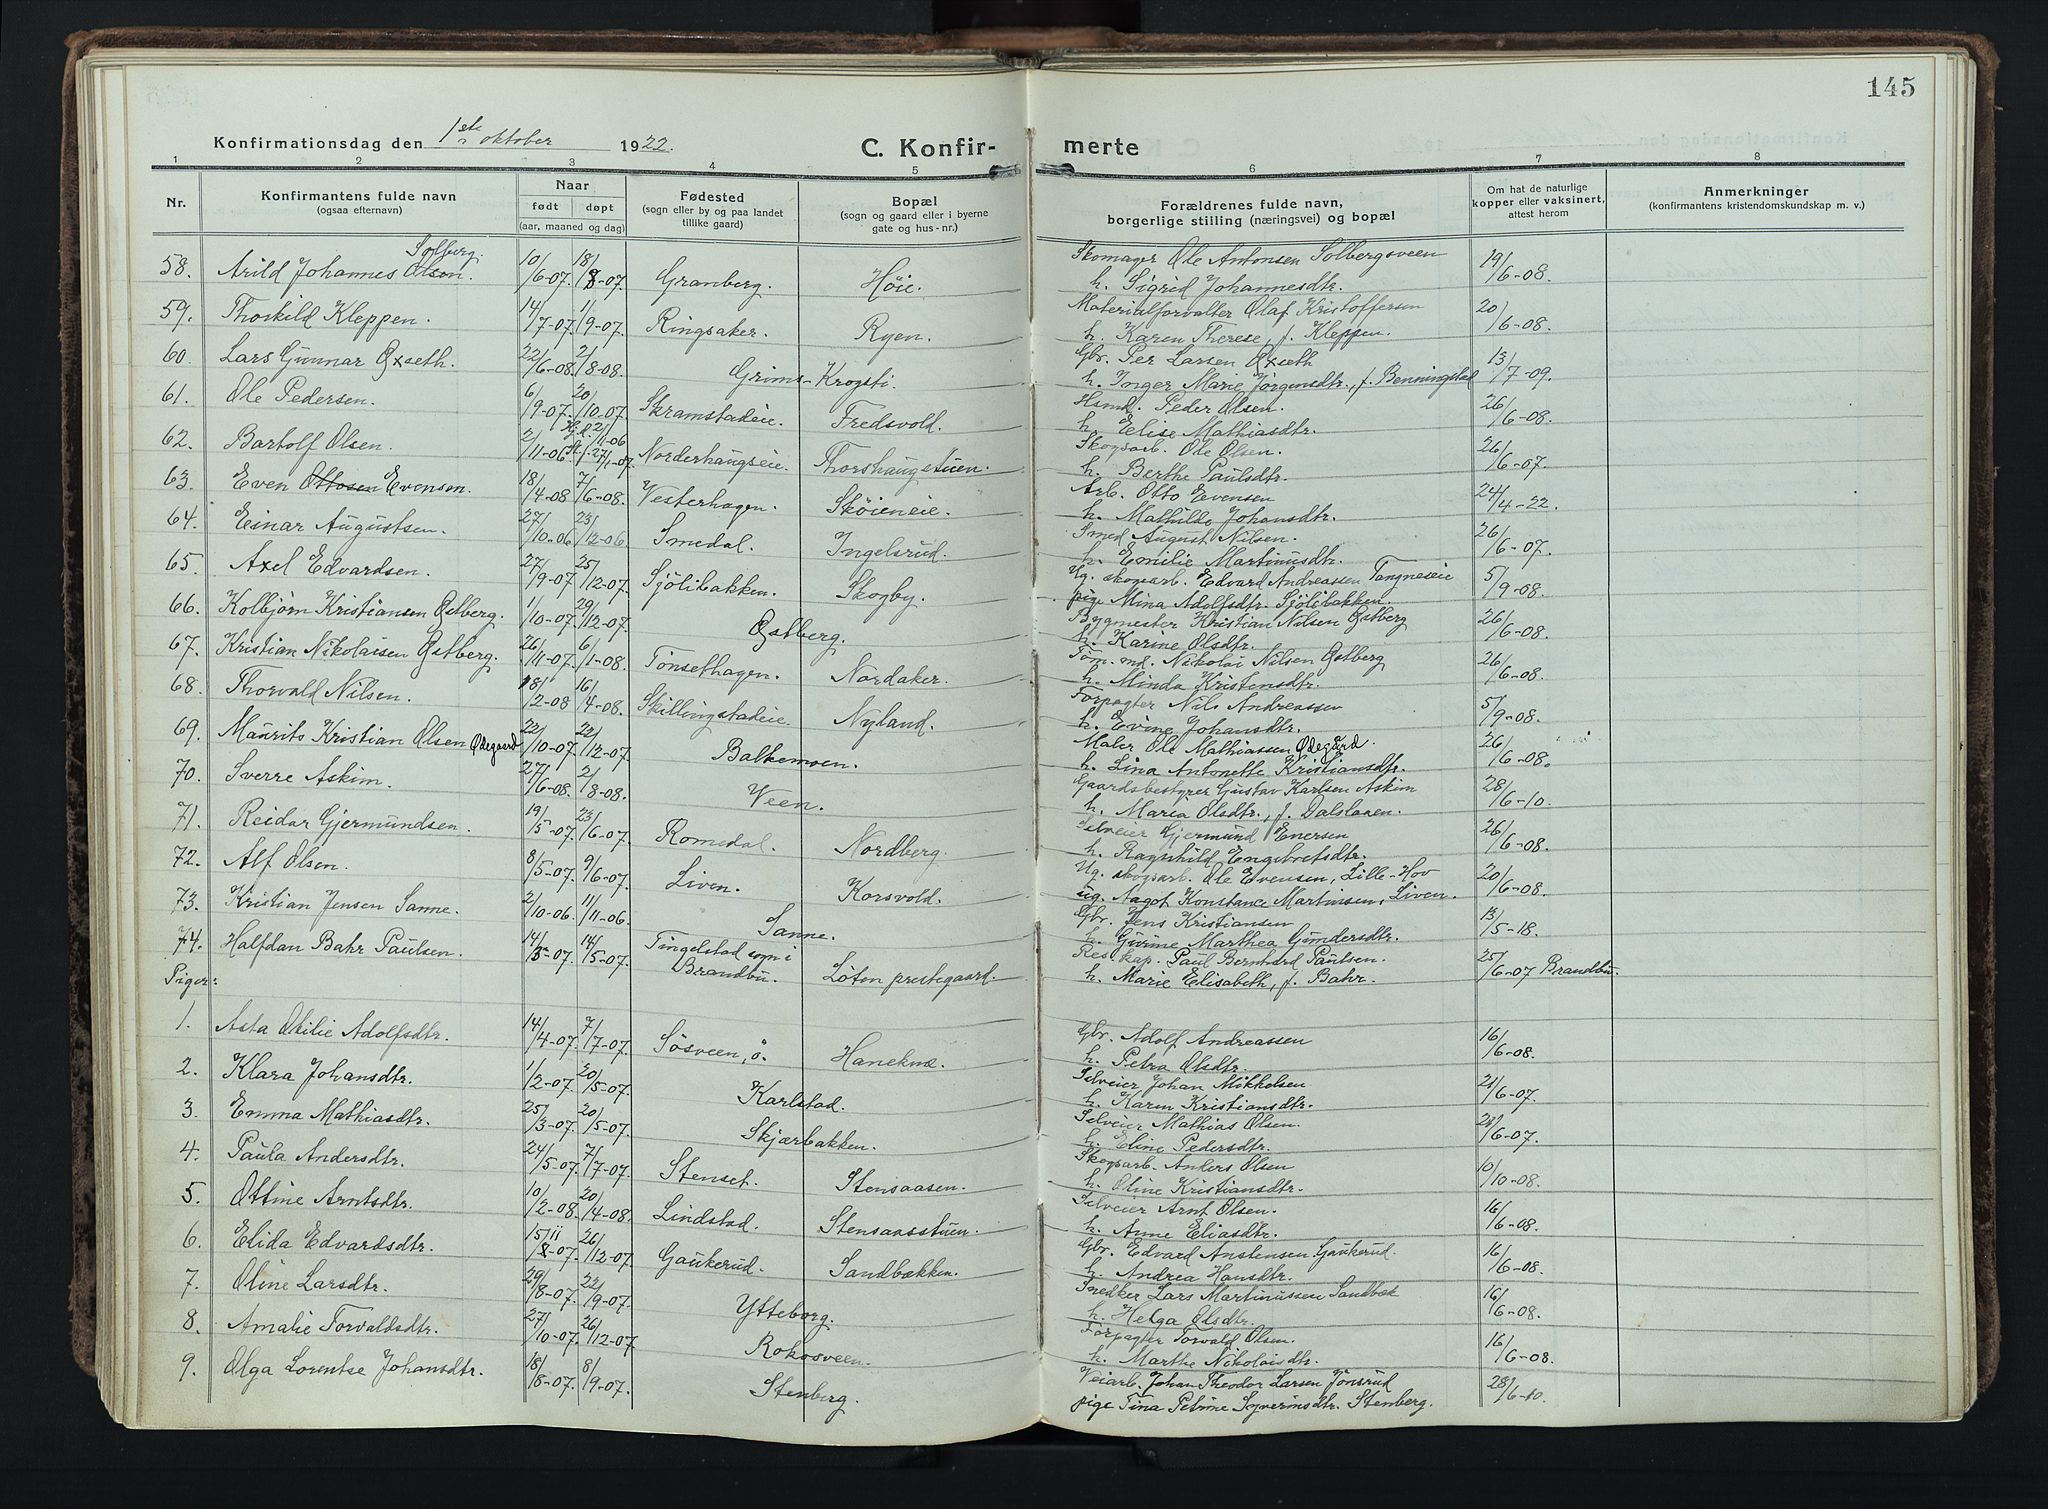 145
Konfirmationsdag den 1ste oktober 1922.
C. Konfir- merte
1 2 3 4 5 6 7 8
Nr. Konfirmantens fulde navn (ogsaa efternavn) Naar født døpt (aar, maaned og dag) Fødested (sogn eller by og paa landet tillike gaard) Bopæl (sogn og gaard eller i byerne gate og hus-nr.) Forældrenes fulde navn, borgerlige stilling (næringsvei) og bopæl Om hat de naturlige kopper eller vaksinert, attest herom Anmerkninger (konfirmantens kristendomskundskap m. v.)
58. Arild Johannes Olsen Solberg. 10/6-07. 18/8-07. Granberg. Høie. Skomager Ole Antonsen Solbergsveen 19/6-08.
h. Sigrid Johannesdtr.
59. Thorkild Kleppen. 14/7-07. 1/9-07. Ringsaker. Ryen. Materialforvalter Olaf Kristoffersen 20/6-08.
h. Karen Therese, f. Kleppen.
60. Lars Gunnar Øxseth. 22/6-08. 2/8-08. Grims-Krogsti. Gbr. Per Larsen Øxseth 13/7-09.
h. Inger Marie Jørgensdtr., f. Benningstad
61. Ole Pedersen. 6/9-07. 20/10-07. Skramstadeie. Fredsvold. Hsmd. Peder Olsen. 26/6-08.
h. Elise Mathiasdtr.
62. Bartolf Olsen. 2/11-06. Hjd. 2/11-06 St. i. 27/1-07. Norderhaugseie. Thorshaugstuen. Skogsarb. Ole Olsen. 26/6-07.
h. Berthe Paulsdtr.
63. Even Ottosen Evensen. 18/4-08 7/6-08. Vesterhagen. Skøieneie. Arb. Otto Evensen 24/4-22.
h. Mathilde Johansdtr.
64. Einar Augustsen. 27/10-06 23/12-06. Smedal. Ingelsrud. Smed August Nilsen. 26/6-07.
h. Emilie Martinusdtr.
65. Axel Edvardsen. 27/9-07. 25/12-07. Sjølibakken. Skogby. Ug. skogsarb. Edvard Andreassen Tangneseie 5/9-08.
pige Mina Adolfsdtr. Sjølibakken.
66. Kolbjørn Kristiansen Østberg. 1/10-07. 29/12-07. Østberg. Bygmester Kristian Nilsen Østberg 26/6-08.
h. Karine Olsdtr.
67. Kristian Nikolaisen Østberg. 26/11-07. 6/1-08. Tønsethagen. Nordaker. Tøm.md. Nikolai Nilsen Østberg 26/6-08.
h. Minda Kristensdtr.
68. Thorvald Nilsen. 18/2-08 16/4-08. Skillingstadeie. Nyland. Forpagter Nils Andreassen 5/9-08.
h. Evine Johansdtr.
69. Maurits Kristian Olsen Ødegaard 22/10-07. 22/12-07. Balkemoen. Maler Ole Mathiassen Ødegård. 26/6-08.
h. Lina Antonette Kristiansdtr.
70. Sverre Askim. 27/6-08. 2/8-08. Veen. Gaardsbestyrer Gustav Karlsen Askim 28/6-10.
h. Maria Olsdtr., f. Dalslaaen.
71. Reidar Gjermundsen. 19/5-07. 23/6-07. Romedal. Nordberg. Selveier Gjermund Enersen 26/6-08.
h. Ragnhild Engebretsdtr.
72. Alf Olsen. 8/5-07. 9/6-07. Liven. Korsvold. Ug. skogsarb. Ole Evensen, Lille-Hov 20/6-08.
ug. Aagot Konstance Martinsen, Liven.
73. Kristian Jensen Sanne. 2/10-06. 11/11-06. Sanne. Gbr. Jens Kristiansen 13/5-18.
h. Gurine Marthea Gundersdtr.
74. Halfdan Bahr Paulsen. 14/3-07. 14/5-07. Tingelstad sogn i Brandbu. Løten prestegaard. Res. kap. Paul Bernhard Paulsen. 25/6-07 Brandbu.
h. Marie Elisabeth, f. Bahr.
Piger:
1. Asta Otilie Adolfsdtr. 14/4-07. 7/7-07. Søsveen, ö. Hanekne. Gbr. Adolf Andreassen 16/6-08.
h. Petra Olsdtr.
2. Klara Johansdtr. 1/2-07. 20/5-07. Karlstad. Selveier Johan Mikkelsen 21/6-07.
h. Karen Kristiansdtr.
3. Emma Mathiasdtr. 25/3-07. 20/5-07. Skjærbakken. Selveier Mathias Olsen. 21/6-07.
h. Eline Pedersdtr.
4. Paula Andersdtr. 24/5-07. 7/7-07. Stenset. Stensaasen. Skogsarb. Anders Olsen 10/10-08.
h. Oline Kristiansdtr.
5. Ottine Arntsdtr. 10/2-08. 20/4-08. Lindstad. Stensaasstuen. Selveier Arnt Olsen. 16/6-08.
h. Anne Eliasdtr.
6. Elida Edvardsdtr. 15/11-07. 26/12-07. Gaukerud. Sandbækken. Gbr. Edvard Anstensen Gaukerud. 16/6-08.
h. Andrea Hansdtr.
7. Oline Larsdtr. 29/8-07. 22/9-07. Ytteborg. Snedker Lars Martinussen Sandbæk 16/6-08.
h. Helga Olsdtr.
8. Amalie Torvaldsdtr. 27/10-07. 26/12-07. Rokosveen. Forpagter Torvald Olsen. 16/6-08.
h. Marthe Nikolaisdtr.
9. Olga Lorentse Johansdtr. 18/8-07. 8/9-07. Stenberg. Veiarb. Johan Theodor Larsen Jønsrud 28/6-10.
pige Tina Petrine Syverinsdtr. Stenberg.